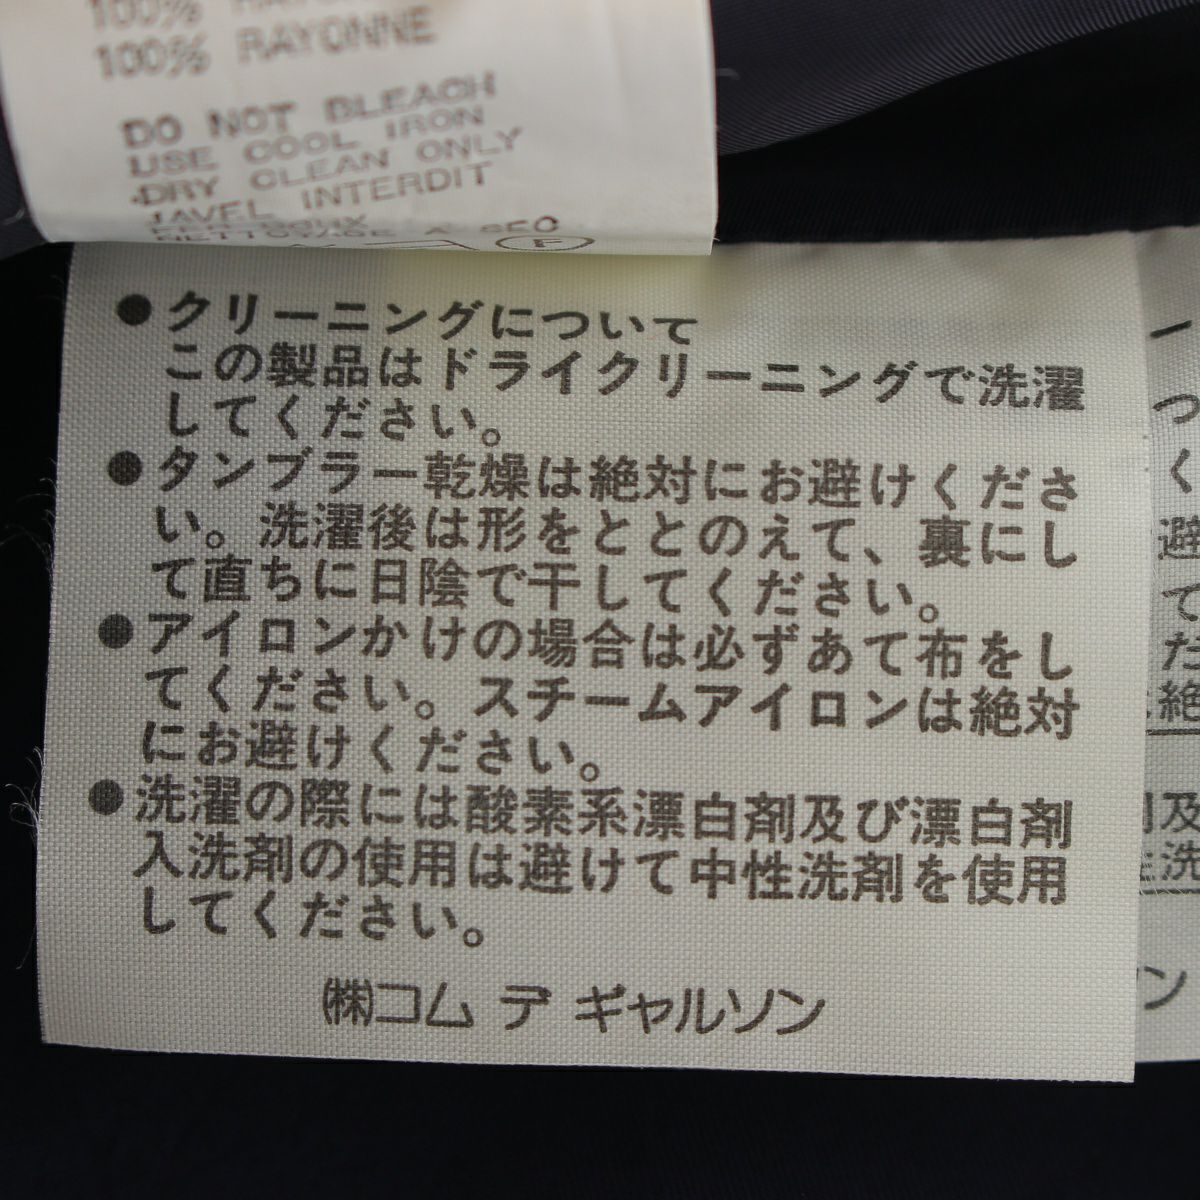 100% RAYONNE
DO NOT BLEACH
USE COOL IRON
DRY CLEAN ONLY
JAVEL INTERDIT
NETTOYAGE A SEC
●クリーニングについて
この製品はドライクリーニングで洗濯
してください。
●タンブラー乾燥は絶対にお避けくださ
い。洗濯後は形をととのえて、裏にし
て直ちに日陰で干してください。
●アイロンかけの場合は必ずあて布をし
てください。スチームアイロンは絶対
にお避けください。
●洗濯の際には酸素系漂白剤及び漂白剤
入洗剤の使用は避けて中性洗剤を使用
してください。
㈱コム デ ギャルソン
ー
つ
く
避
て
た
絶
剤及
性洗
ン